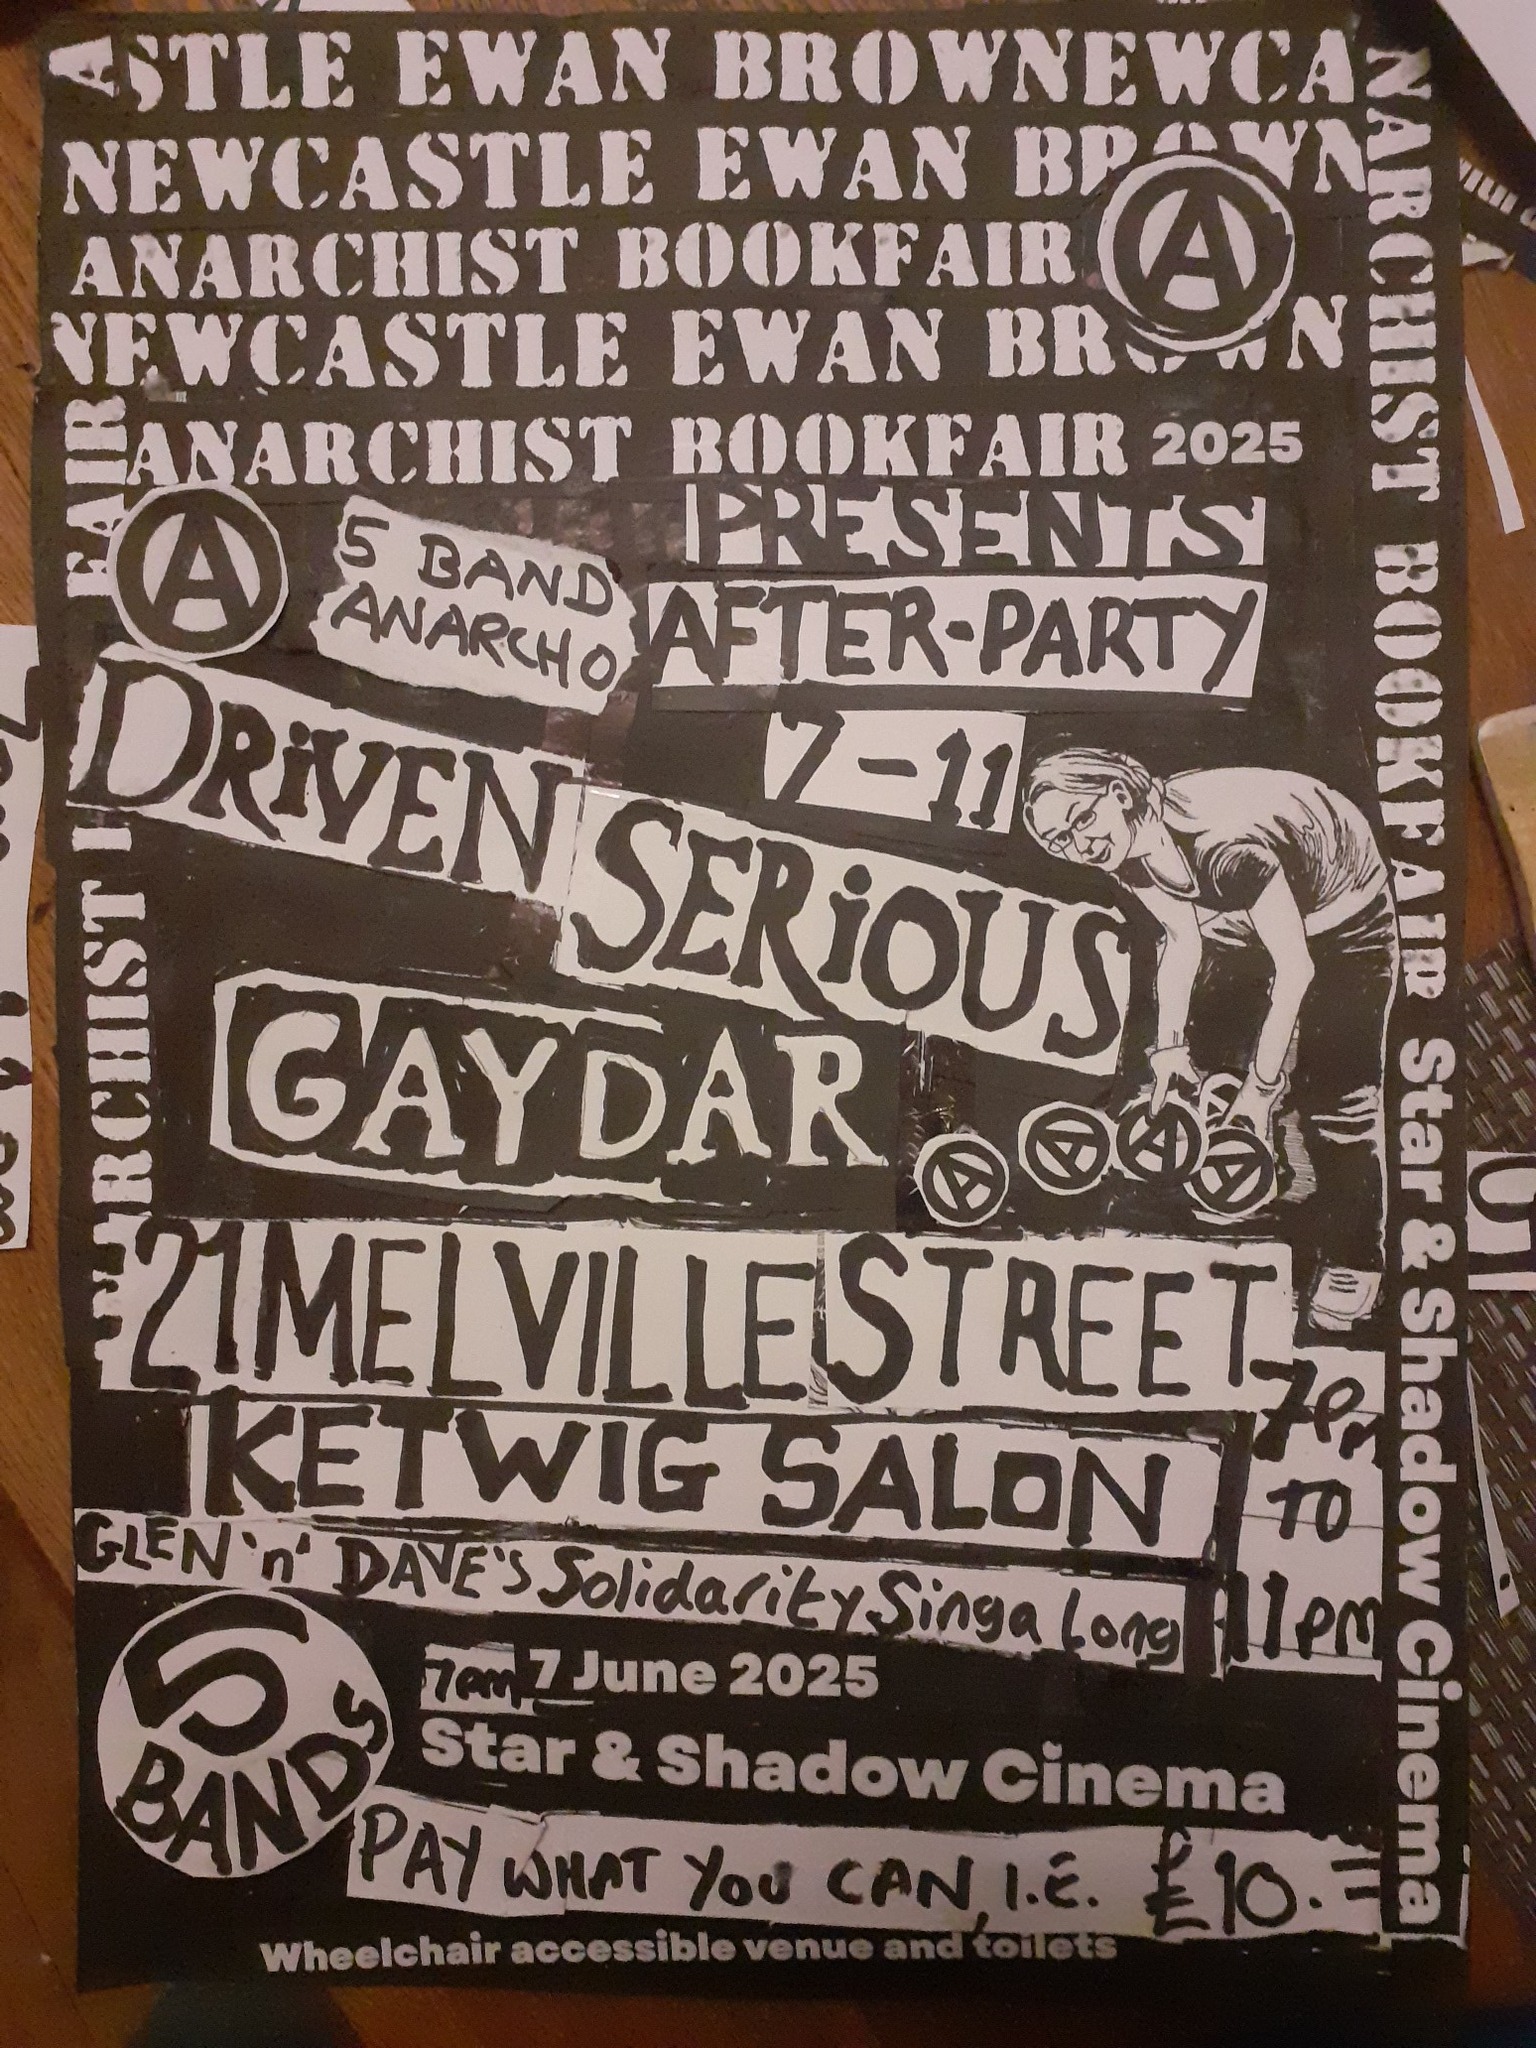 ASTLE EWAN BROWNEWCA
NEWCASTLE EWAN BROWN
ANARCHIST BOOKFAIR
A
NEWCASTLE EWAN BROWN
ANARCHIST BOOKFAIR 2025
A
5 BAND
ANARCHO
PRESENTS
AFTER-PARTY
7-11
DRiVEN SERiOUS
GAYDAR
A
A
A
A
21 MELVILLE STREET
KETWIG SALON
GLEN 'n' DAVE'S Solidarity Singa Long
7pm
TO
11pm
5
BANDS
7 June 2025
Star & Shadow Cinema
PAY WHAT YOU CAN, I.E. £10.
Wheelchair accessible venue and toilets
NARCHIST BOOKFAIR Star & Shadow Cinema
ARCHIST
FAIR